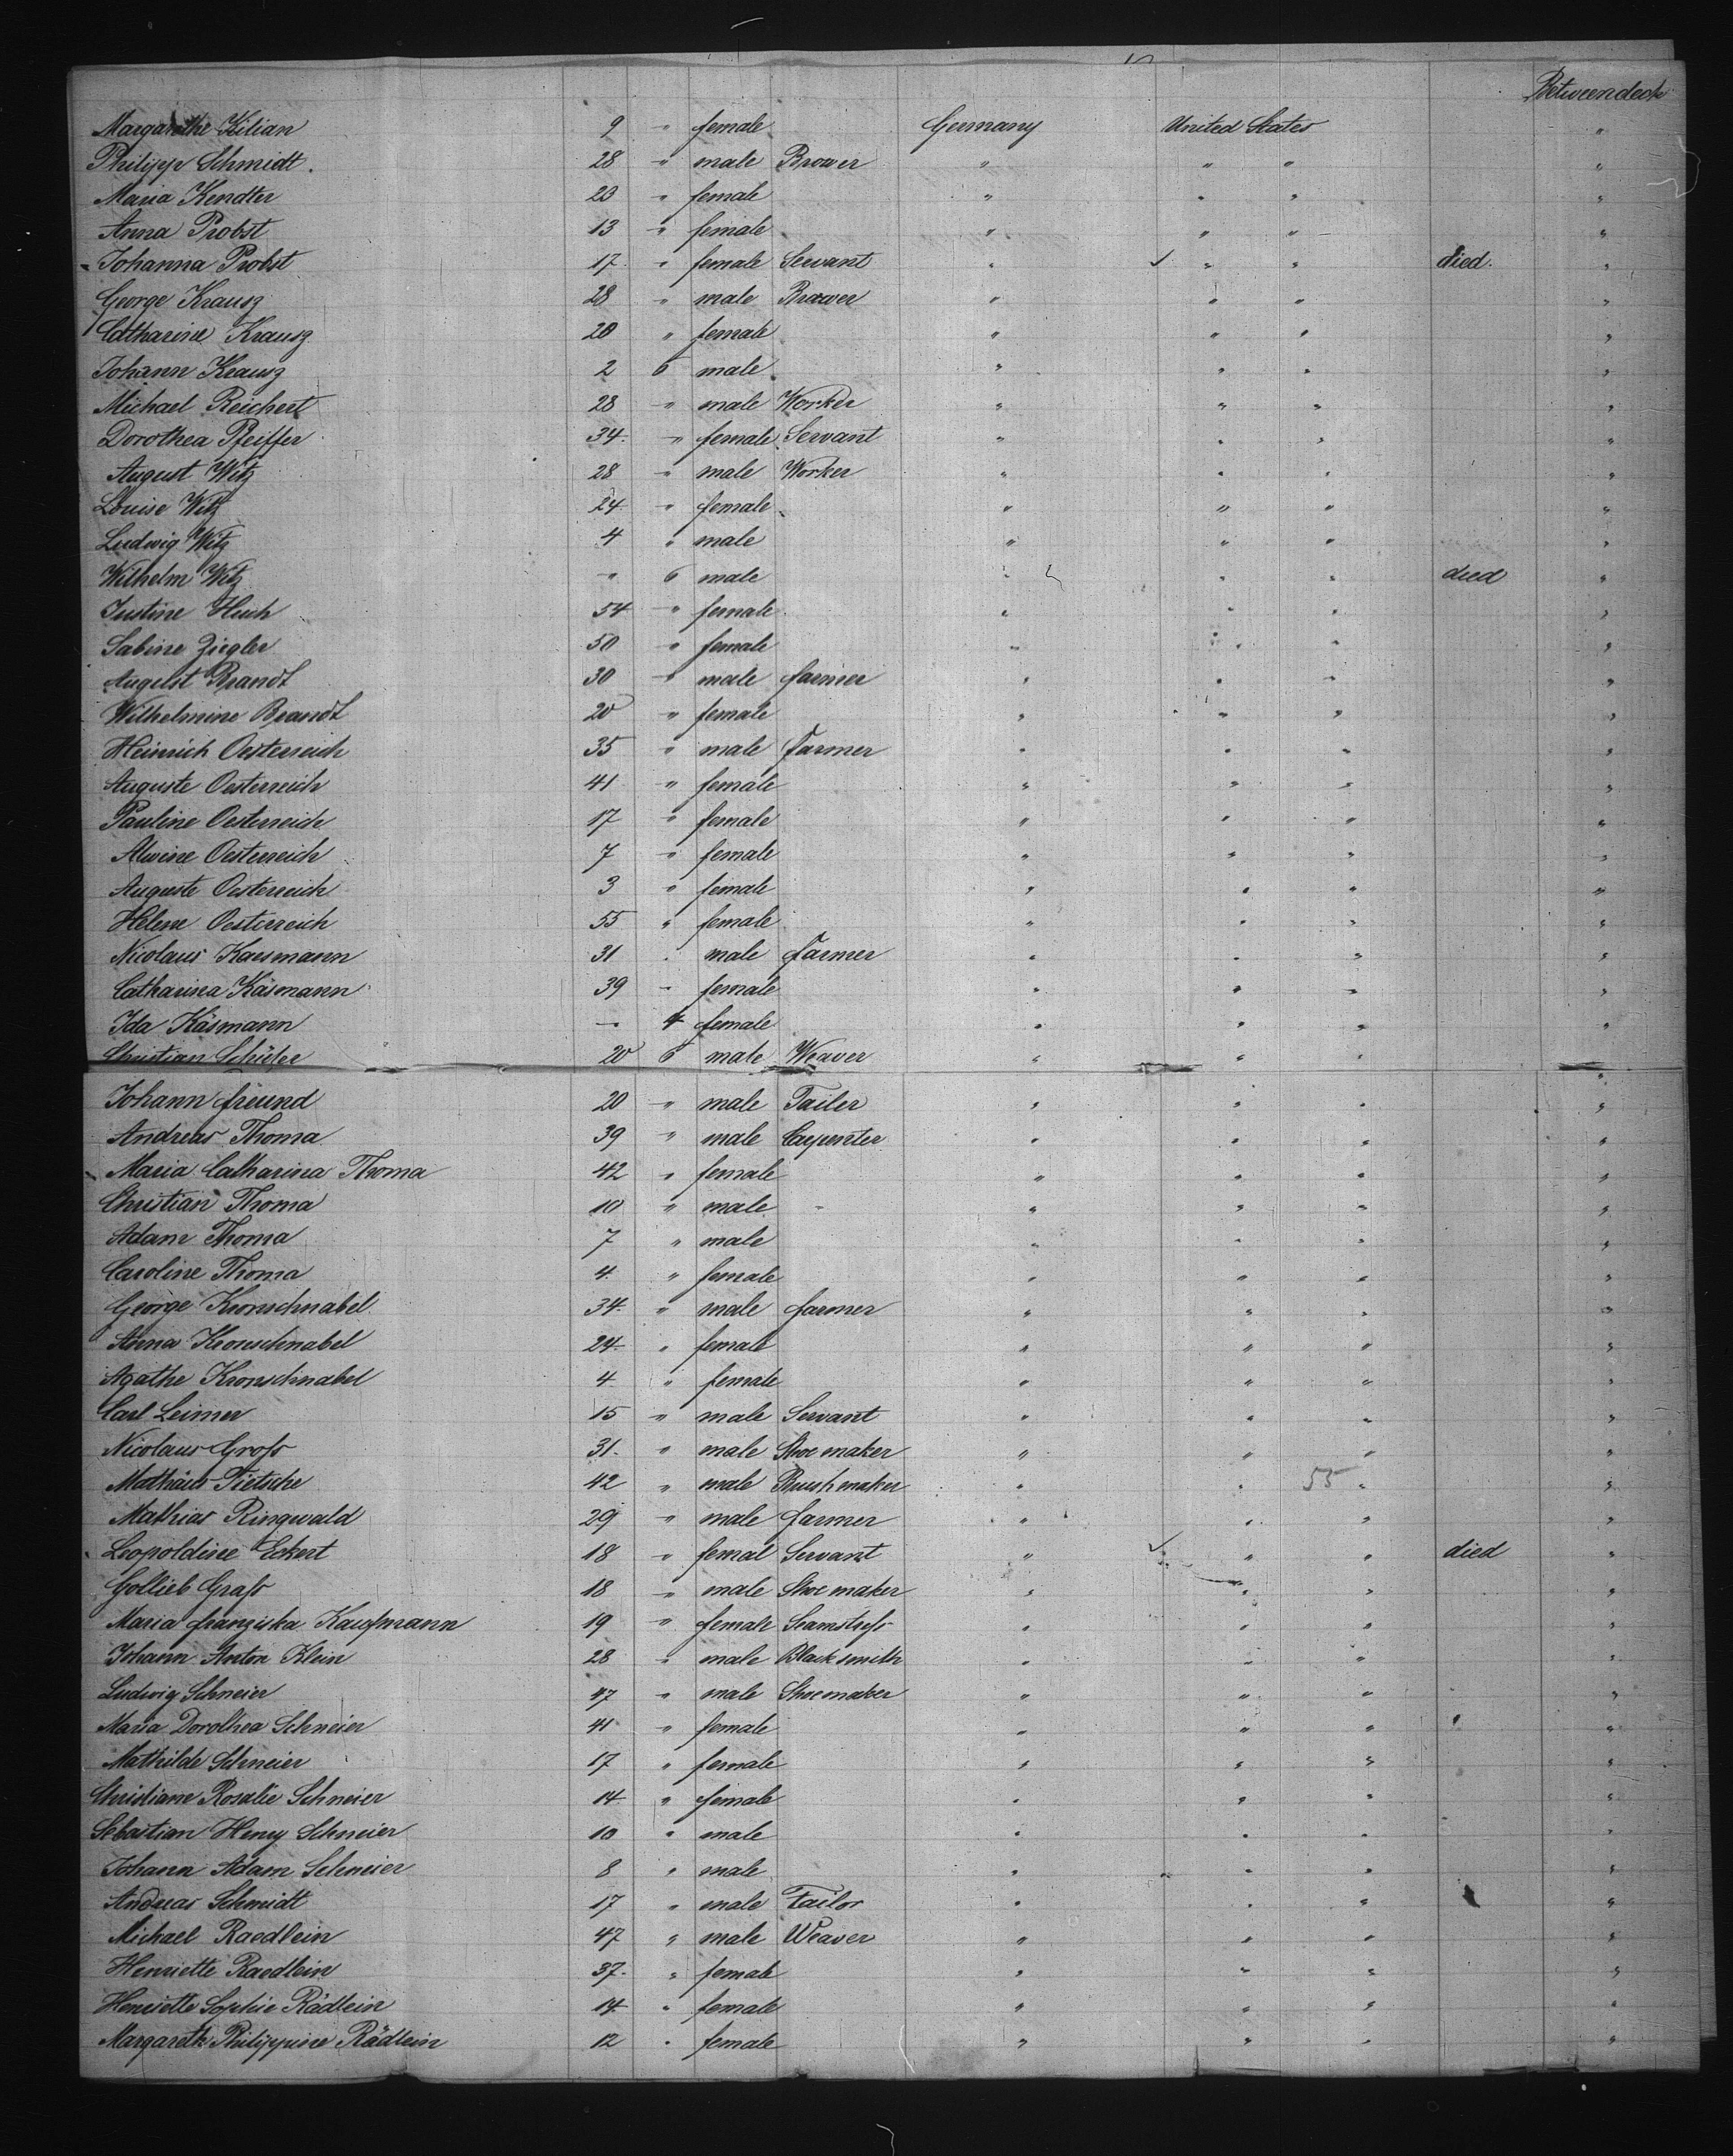 Betweendeck
Margarethe Kilian 9 " female Germany United States "
Philipp Schmidt. 28 " male Brower " " " "
Maria Kendter 20 " female " " " "
Anna Probst 13 " female " " " "
Johanna Probst 17 " female Servant " ✓ " " died. "
George Krausz 28 " male Brower " " " "
Catharine Krausz 20 " female " " " "
Johann Krausz 2 6 male " " " "
Michael Reichert 28 " male Worker " " " "
Dorothea Pfeiffer 34. " female Servant " " " "
August Witz 28 " male Worker " " " "
Louise Witz 24 " female " " " "
Ludwig Witz 4 " male " " " "
Wilhelm Witz " 6 male " " " died "
Justine Huch 54 " female " " " "
Sabine Ziegler 50 " female " " " "
August Brandt 30 " male farmer " " " "
Wilhelmine Brandt 20 " female " " " "
Heinrich Oesterreich 35 " male Farmer " " " "
Auguste Oesterreich 41 " female " " " "
Pauline Oesterreich 17 " female " " " "
Alwine Oesterreich 7 " female " " " "
Auguste Oesterreich 3 " female " " " "
Helene Oesterreich 55 " female " " " "
Nicolaus Kaesmann 31 " male Farmer " " " "
Catharina Käsmann 39 " female " " " "
Ida Käsmann " 4 female " " " "
Christian Schüler 20 6 male Weaver " " " "
Johann Freund 20 " male Tailer " " " "
Andreas Thoma 39 " male Carpenter " " " "
Maria Catharina Thoma 42 " female " " " "
Christian Thoma 10 " male " " " "
Adam Thoma 7 " male " " " "
Caroline Thoma 4 " female " " " "
George Kronschnabel 34 " male farmer " " " "
Anna Kronschnabel 24 " female " " " "
Agathe Kronschnabel 4 " female " " " "
Carl Leimer 15 " male Servant " " " "
Nicolaus Groß 31 " male Shoemaker " " " "
Mathäus Tietsche 42 " male Brushmaker " " 55 " "
Mathias Ringwald 29 " male farmer " " " "
Leopoldine Eckert 18 " femal Servant " ✓ " " died "
Gollieb Graß 18 " male Shoemaker " " " "
Maria Franziska Kaufmann 19 " female Seamstreß " " " "
Johann Anton Klein 28 " male Blacksmith " " " "
Ludwig Schneier 47 " male Shoemaker " " " "
Maria Dorothea Schneier 41 " female " " " "
Mathilde Schneier 17 " female " " " "
Christiane Rosalie Schneier 14 " female " " " "
Sebastian Henry Schneier 10 " male " " " "
Johann Adam Schneier 8 " male " " " "
Andreas Schmidt 17 " male Tailor " " " "
Michael Raedlein 47 " male Weaver " " " "
Henriette Raedlein 37. " female " " " "
Henriette Sophie Rädlein 14 " female " " " "
Margareth Philippine Rädlein 12 " female " " " "